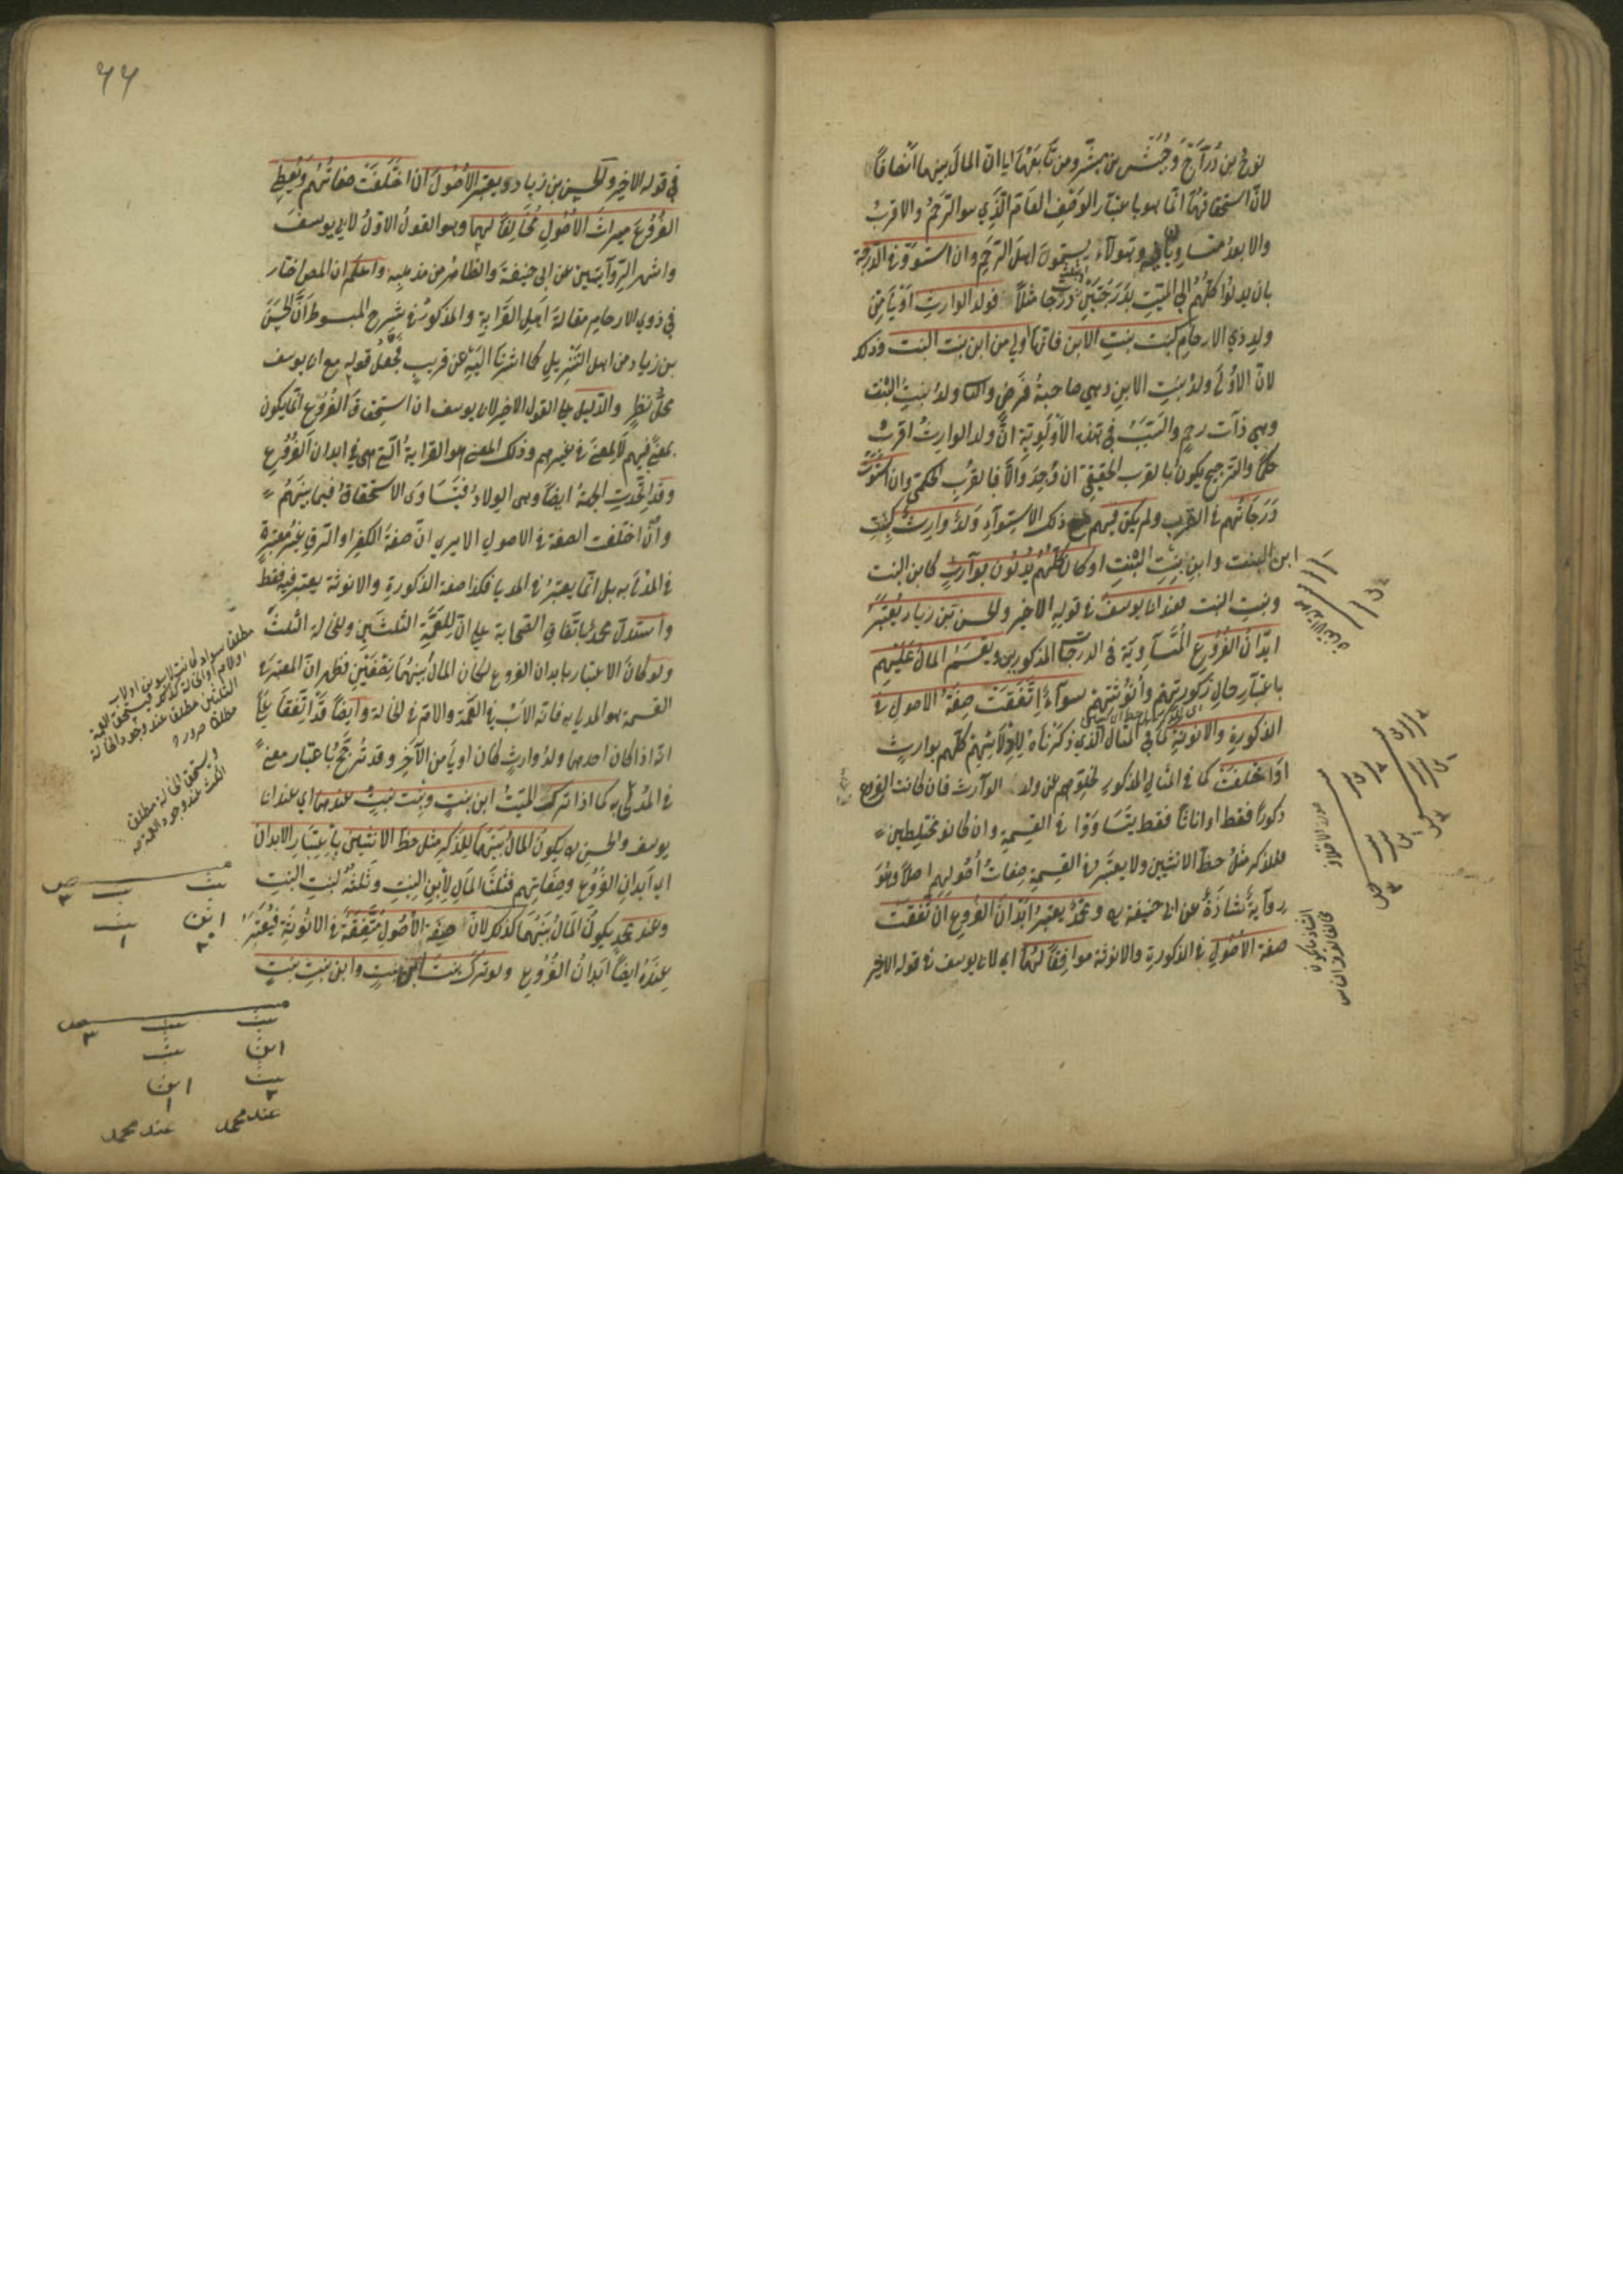 نوح بن دراج وحبيش بن مبشر ومن تابعهما الى ان المال بينهما انصافا
لان استحقاقهما انما هو باعتبار الوصف العام الذي هو الرحم والاقرب
والابعد متساويان فيه وهولاء يسمون اهل الرحم وان استووا في الدرجة
بان يدلوا كلهم الى الميت بدرجتين او بثلث درجات مثلا فولد الوارث اولى من
ولد ذوي الارحام كبنت بنت الابن فانها اولى من ابن بنت البنت وذلك
لان الاولى ولد بنت الابن وهي صاحبة فرض والثا ولد بنت البنت
وهي ذات رحم والسبب في هذه الاولوية ان ولد الوارث اقرب
حكما والترجيح يكون بالقرب الحقيقي ان وجد والا فبالقرب الحكمي وان استوت
درجاتهم في القرب ولم يكن فيهم مع ذلك الاستواء ولد وارث كبنت
ابن البنت وابن بنت البنت او كان كلهم يدلون بوارث كابن البنت
وبنت البنت فعند ابى يوسف في قوله الاخير والحسن بن زياد يعتبر
ابدان الفروع المتساوية في الدرجات المذكورين ويقسم المال عليهم
باعتبار حال ذكورتهم وانوثتهم سواء اتفقت صفة الاصول في
الذكورة والانوثة كما في المثال الذي ذكرناه لادلائهم كلهم بوارث
او اختلفت كما في المثال المذكور لخلوهم عن ولد الوارث فان كانت الفروع
ذكورا فقط او اناثا فقط يتساووا في القسمة وان كانو مختلطين
فللذكر مثل حظ الانثيين ولا يعتبر في القسمة صفات اصولهم اصلا وهو
رواية شاذة عن ابى حنيفة ره ومحمد يعتبر ابدان الفروع ان تفقت
صفة الاصول في الذكورة والانوثة موافقا لهما اى لابى يوسف في قوله الاخير
٦٦
في قوله الاخير والحسن بن زياد ويعتبر الاصول ان اختلفت صفاتهم ويعطي
الفروع ميراث الاصول مخالفا لهما وهو القول الاول لابى يوسف
واشهر الروايتين عن ابى حنيفة والظاهر من مذهبه واعلم ان المص اختار
في ذوي الارحام مقالة اهل القرابة والمذكور في شرح المبسوط ان الحسن
بن زياد من اهل التنزيل كما اشرنا اليه عن قريب فجعل قوله مع ابى يوسف
محل نظر والدليل على القول الاخير لابى يوسف ان استحقاق الفروع انما يكون
بمعنى فيهم لا لمعنى في غيرهم وذلك المعنى هو القرابة التي هى في ابدان الفروع
وقد اتحدت الجهة ايضا وهى الولاد فيتساوى الاستحقاق فيما بينهم
وان اختلفت الصفة في الاصول الا يرى ان صفة الكفر او الرق غير معتبرة
في المدلى به بل انما يعتبر في المدلى فكذا صفة الذكورة والانوثة يعتبر فيه فقط
واستدل محمد باتفاق الصحابة على ان للعمة الثلثين وللخالة الثلث
ولو كان الاعتبار بابدان الفروع لكان المال بينهما نصفين فظهر ان المعتبر في
القسمة هو المدلى به فانه الاب في العمة والام في الخالة وايضا قد اتفقا على
انه اذا كان احدهما ولد وارث كان اولى من الآخر وقد ترجح باعتبار معنى
في المدلى به كما اذا ترك الميت ابن بنت وبنت بنت عندهما اى عند ابى
يوسف والحسن ره يكون المال بينهما للذكر مثل حظ الانثيين باعتبار الابدان
اى ابدان الفروع وصفاتهم فثلثا المال لابن البنت وثلثه لبنت البنت
وعند محمد يكون المال بينهما كذلك لان صفة الاصول متفقة في الانوثية فيعتبر
عنده ايضا ابدان الفروع ولو ترك بنت ابن بنت وابن بنت بنت
الثلثين مطلقا عند وجود الخالة
ويستحق الخالة مطلقا
الثلث عند وجود العمة
بنت بنت
ابن بنت
٢ ١
بنت بنت
ابن بنت
بنت ابن
٢ ١
عند محمد عند محمد